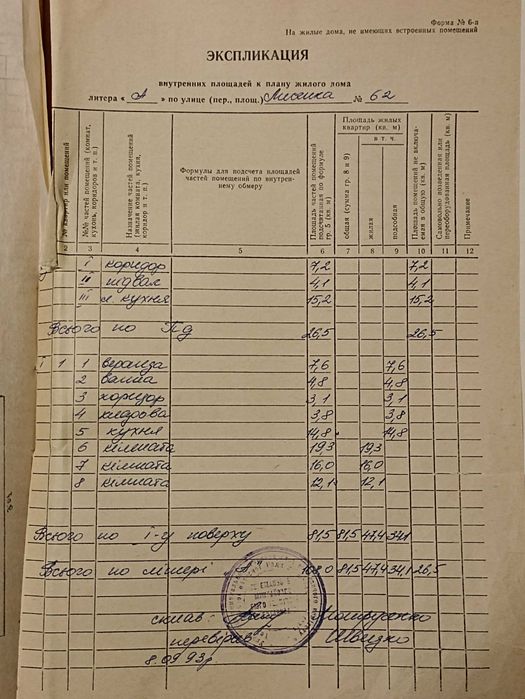 Форма № 6-а
На жилые дома, не имеющих встроенных помещений
ЭКСПЛИКАЦИЯ
внутренних площадей к плану жилого дома
литера « А » по улице (пер., площ.) Лисенка № 62
№ квартир или помещений
№№ частей помещений (комнат, кухонь, коридоров и т. п.)
Назначение частей помещений (жилая комната, кухня, коридор и т. п.)
Формулы для подсчета площадей частей помещений по внутреннему обмеру
Площадь частей помещений подсчитанная по формуле гр. 5 (кв. м)
Площадь жилых квартир (кв. м)
в т. ч.
общая (сумма гр. 8 и 9)
жилая
подсобная
Площадь помещений не включаемая в общую (кв. м)
Самовольно возведенная или переоборудованная площадь (кв. м)
Примечание
2 3 4 5 6 7 8 9 10 11 12
I коридор 7,2 7,2
II підвал 4,1 4,1
III л. кухня 15,2 15,2
Всього по Пд 26,5 26,5
I 1 1 веранда 7,6 7,6
2 ванна 4,8 4,8
3 коридор 3,1 3,1
4 кладова 3,8 3,8
5 кухня 14,8 14,8
6 кімната 19,3 19,3
7 кімната 16,0 16,0
8 кімната 12,1 12,1
Всього по 1-у поверху 81,5 81,5 47,4 34,1
Всього по літері "А" 108,0 81,5 47,4 34,1 26,5
склав
перевірив Швецко
8.09.93р